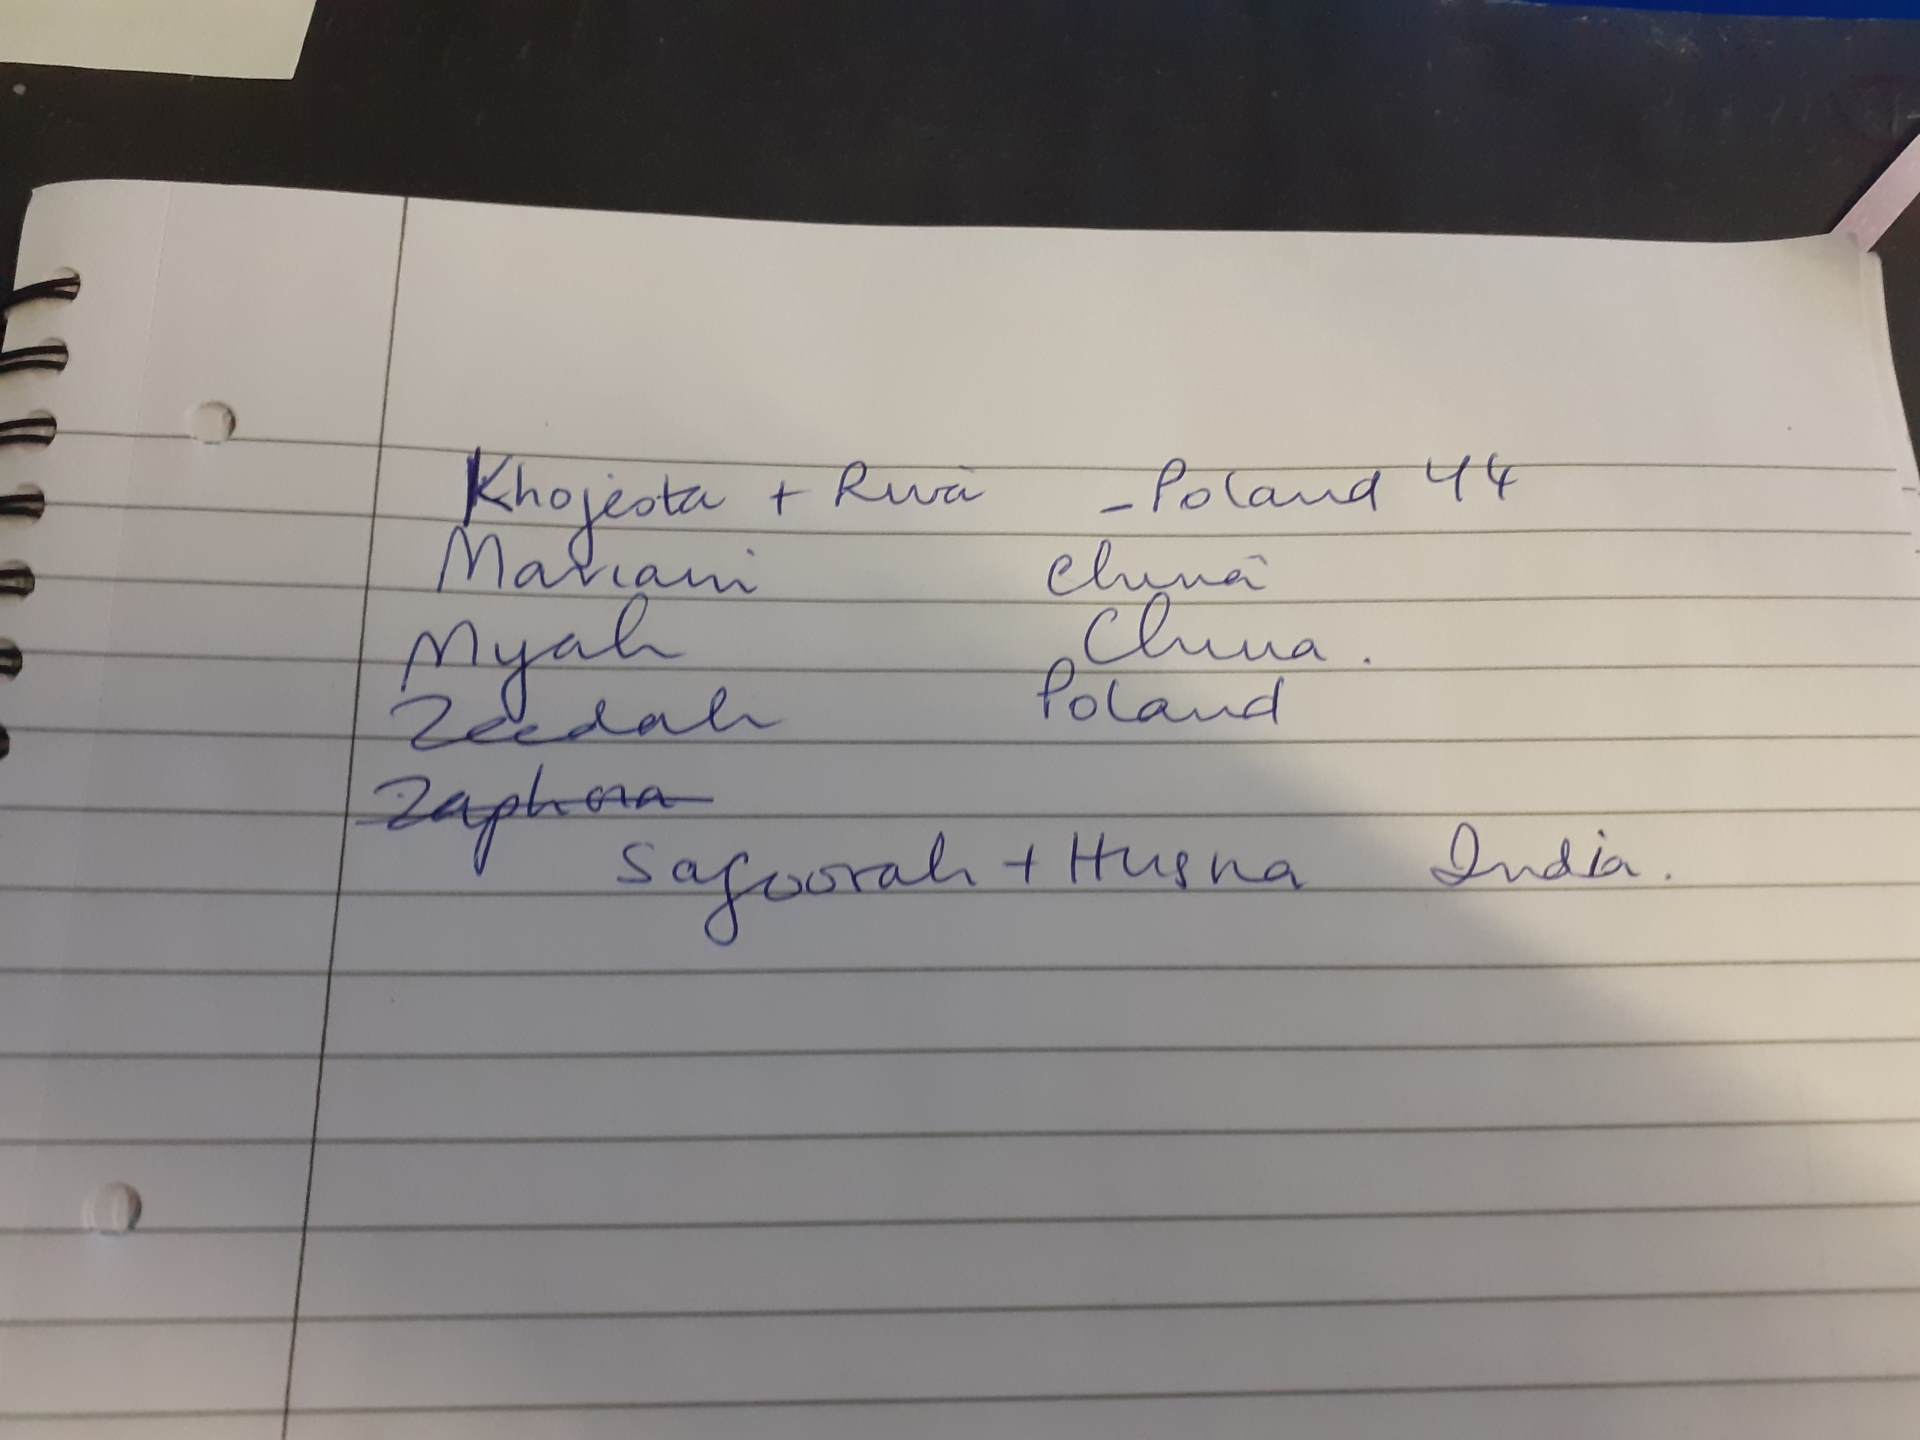 Khojesta + Riva - Poland Y4
Mariam China
Myah China.
Zeedah Poland
Zaphora
Safoorah + Husna India.